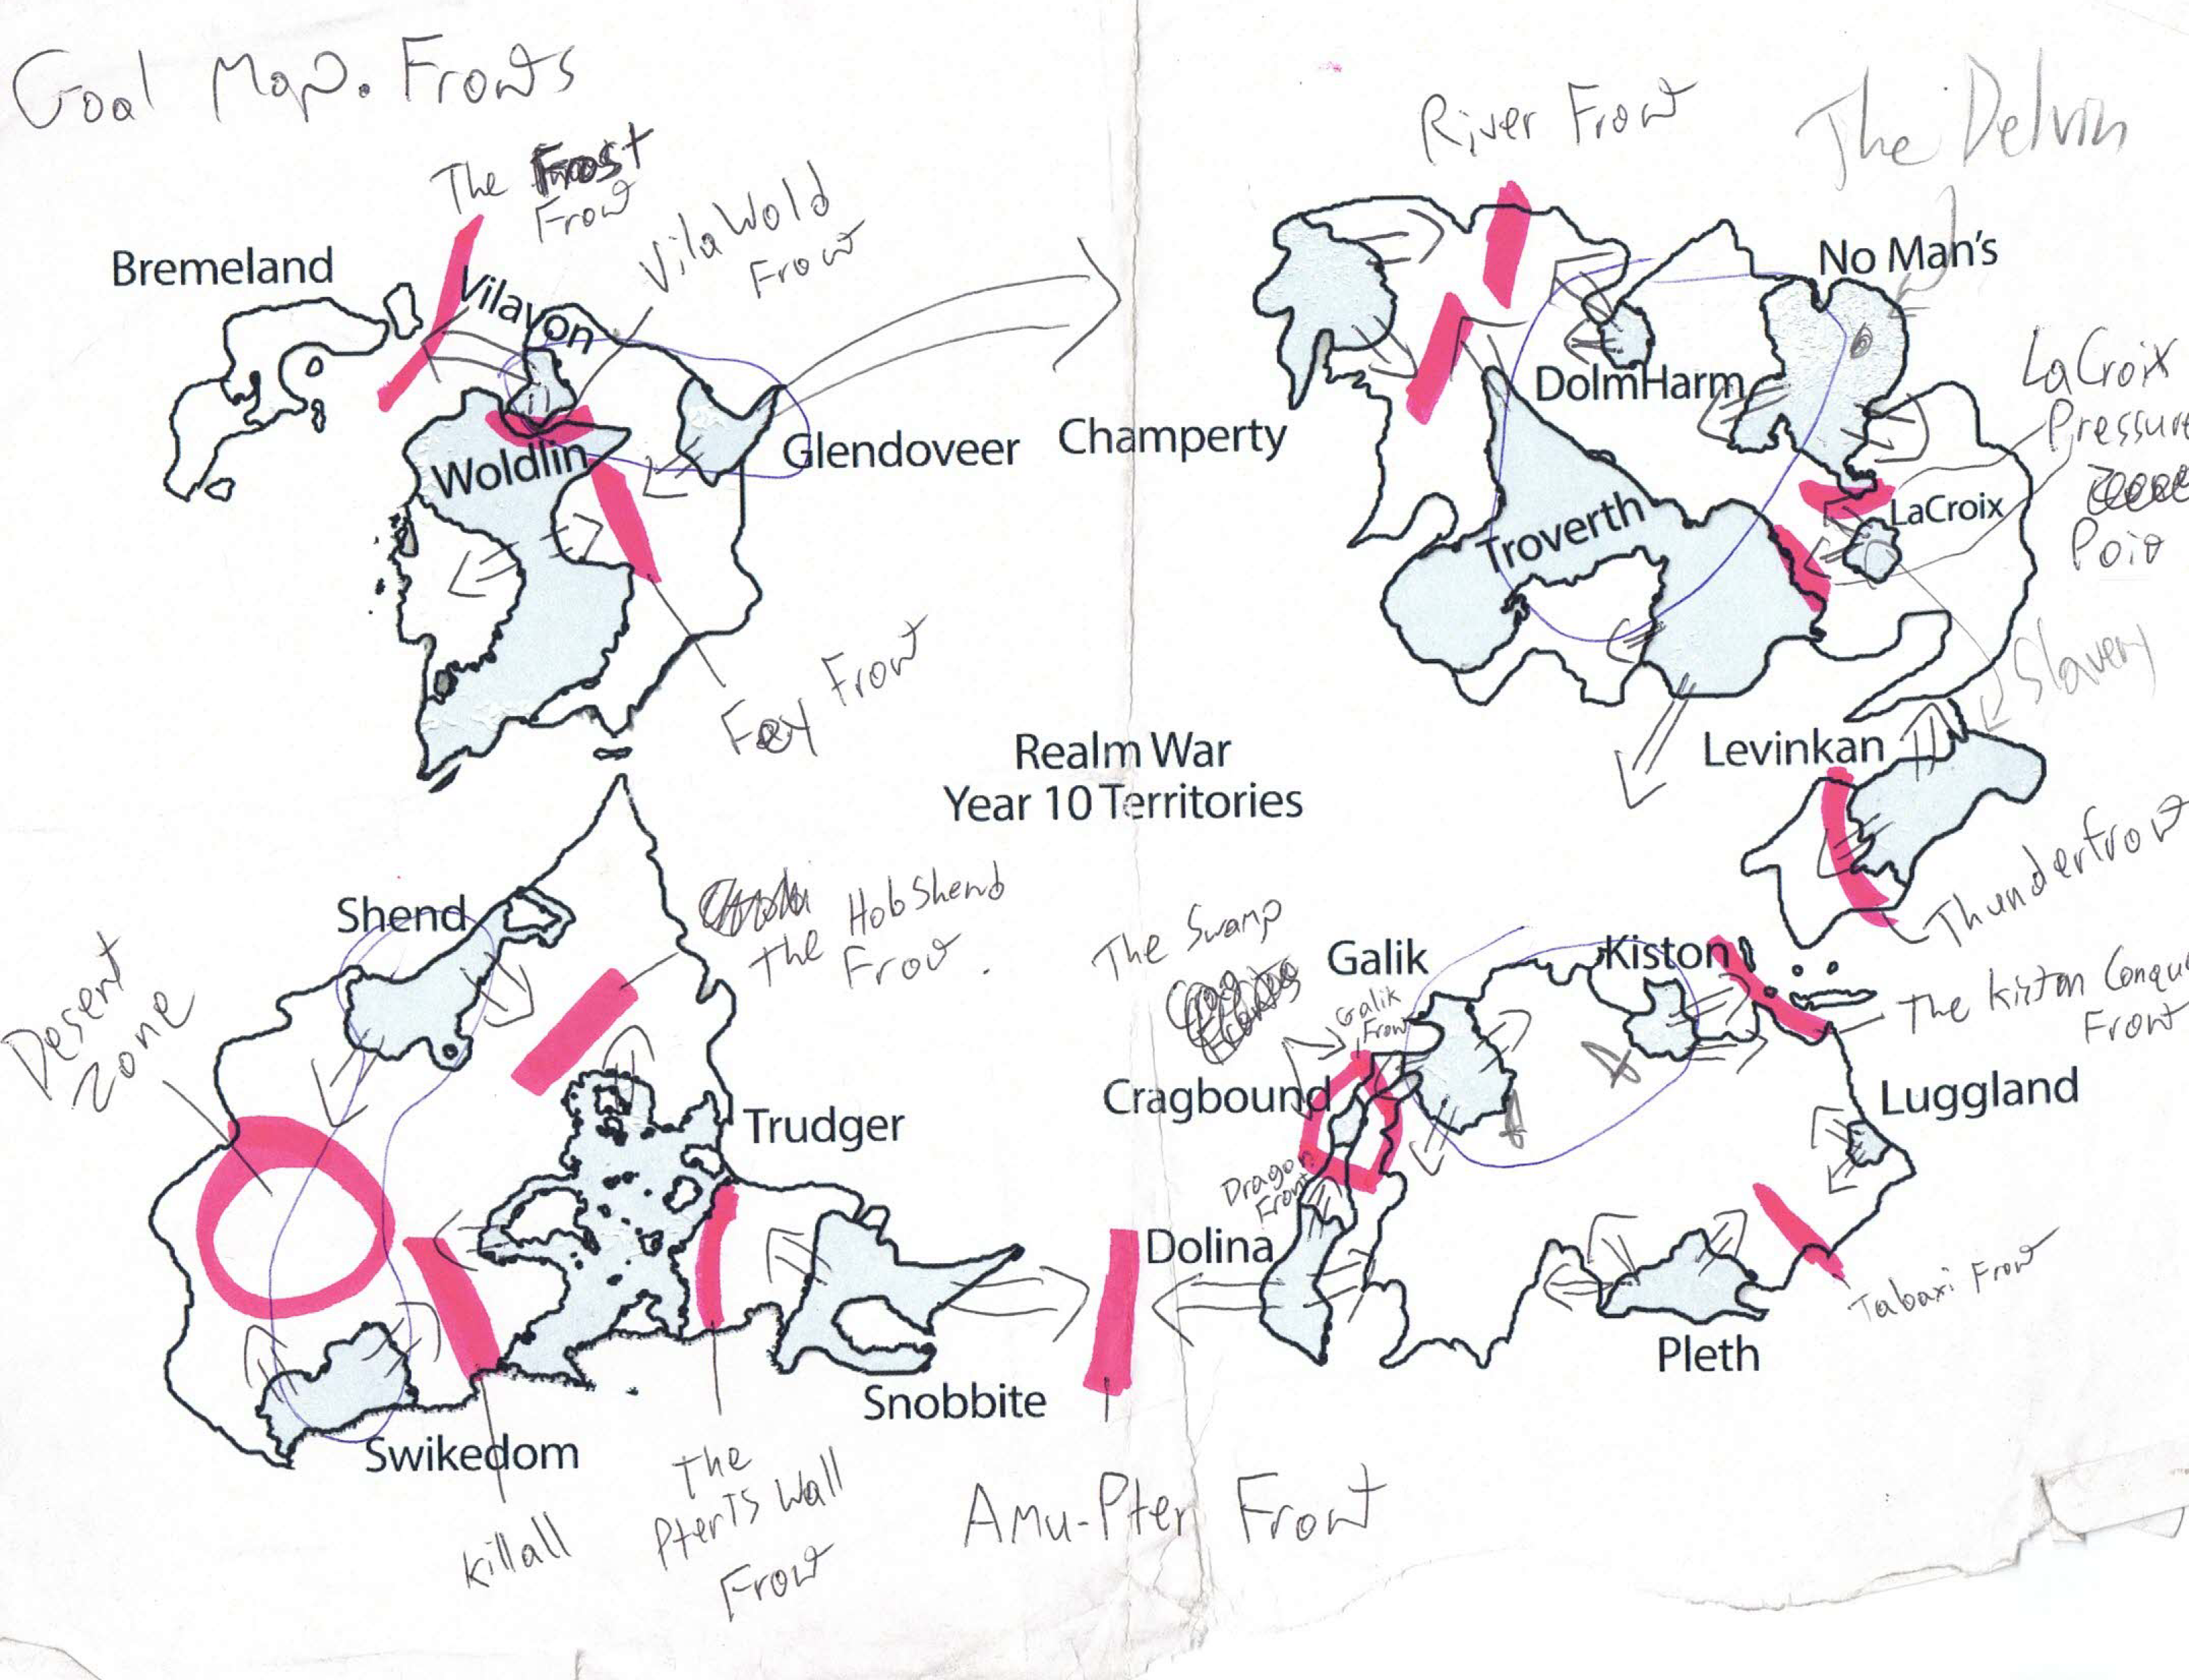 Goal Map. Fronts
The Frost
Front
VilaWold
Front
River Front
The Delvin
Bremeland
Vilavon
No Man's
Woldlin
Glendoveer
Champerty
DolmHarm
LaCroix
Pressure
Point
LaCroix
Troverth
Fey Front
Slavery
Realm War
Year 10 Territories
Levinkan
Thunderfront
Shend
The HobShend
Front.
Desert
Zone
The Swamp
Galik
Galik
Front
Kiston
The Kiston Conque
Front
Cragbound
Luggland
Trudger
Dragon
Front
Dolina
Tabaxi Front
Pleth
Snobbite
Swikedom
Killall
The
PterTS Wall
Front
Amu-Pter Front